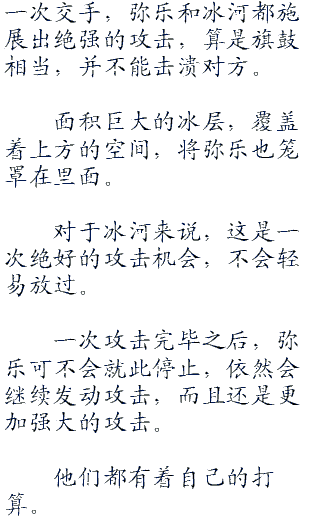 一次交手，弥乐和冰河都施
展出绝强的攻击，算是旗鼓
相当，并不能击溃对方。
面积巨大的冰层，覆盖
着上方的空间，将弥乐也笼
罩在里面。
对于冰河来说，这是一
次绝好的攻击机会，不会轻
易放过。
一次攻击完毕之后，弥
乐可不会就此停止，依然会
继续发动攻击，而且还是更
加强大的攻击。
他们都有着自己的打
算。